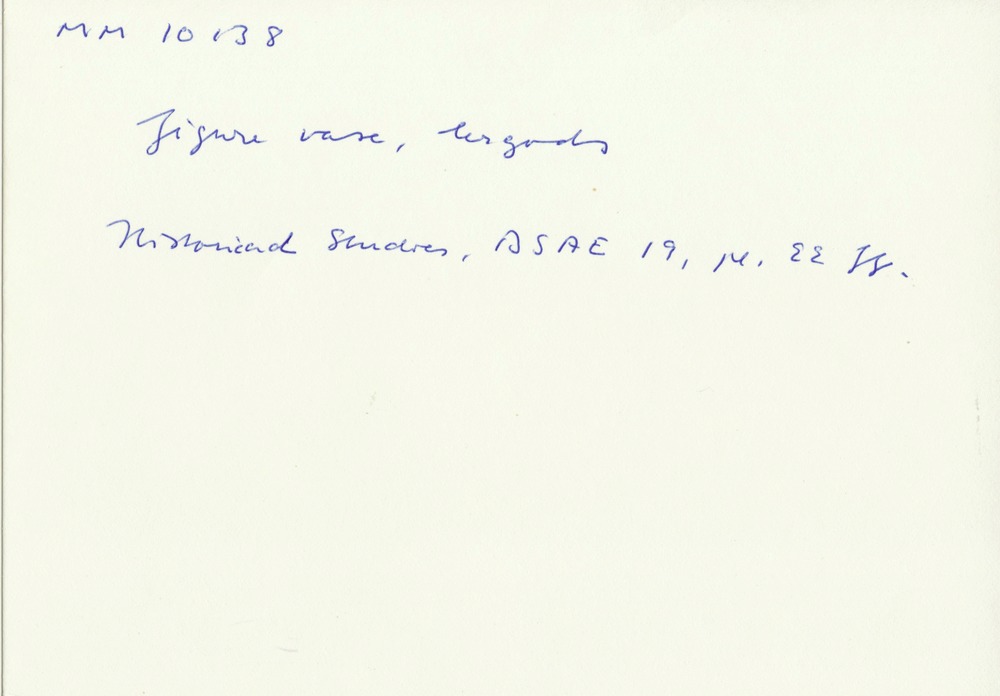 MM 10138
Figure vase, lergods
Historical Studies, BSAE 19, pl. 22 ff.